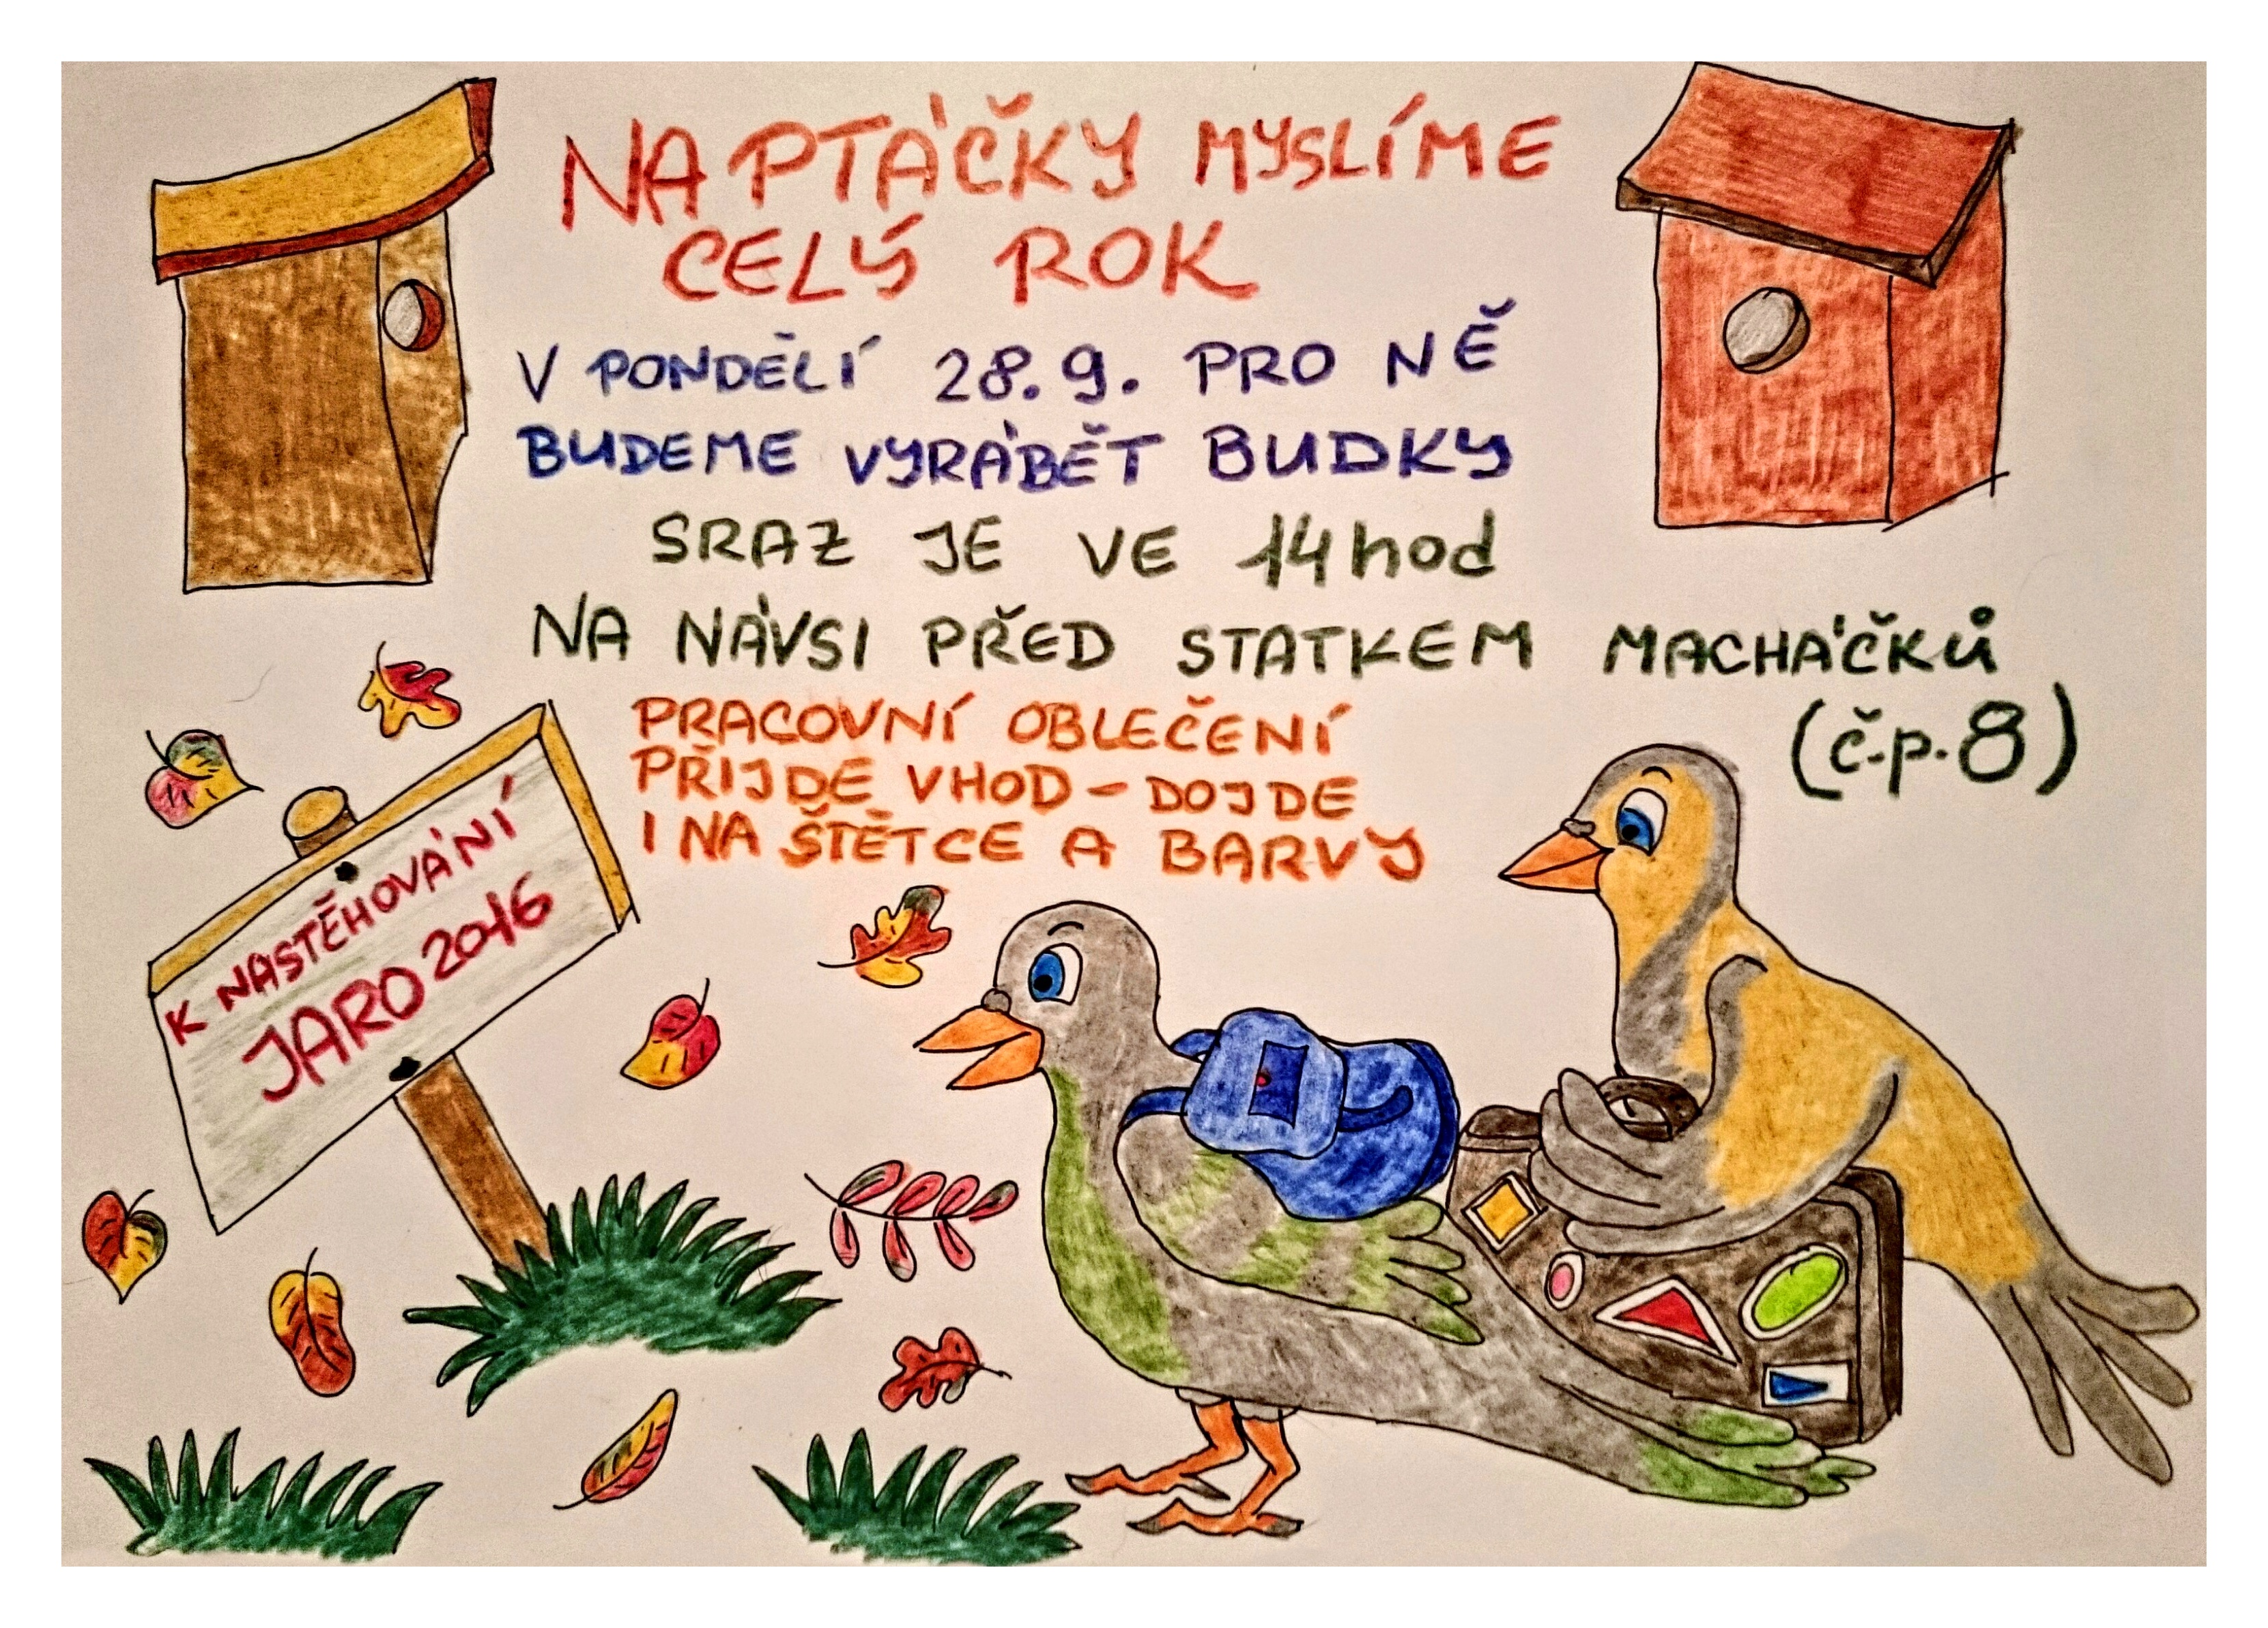 NA PTÁČKY MYSLÍME
CELÝ ROK
V PONDĚLÍ 28.9. PRO NĚ
BUDEME VYRÁBĚT BUDKY
SRAZ JE VE 14hod
NA NÁVSI PŘED STATKEM MACHÁČKŮ
(č.p.8)
PRACOVNÍ OBLEČENÍ
PŘIJDE VHOD – DOJDE
I NA ŠTĚTCE A BARVY
K NASTĚHOVÁNÍ
JARO 2016